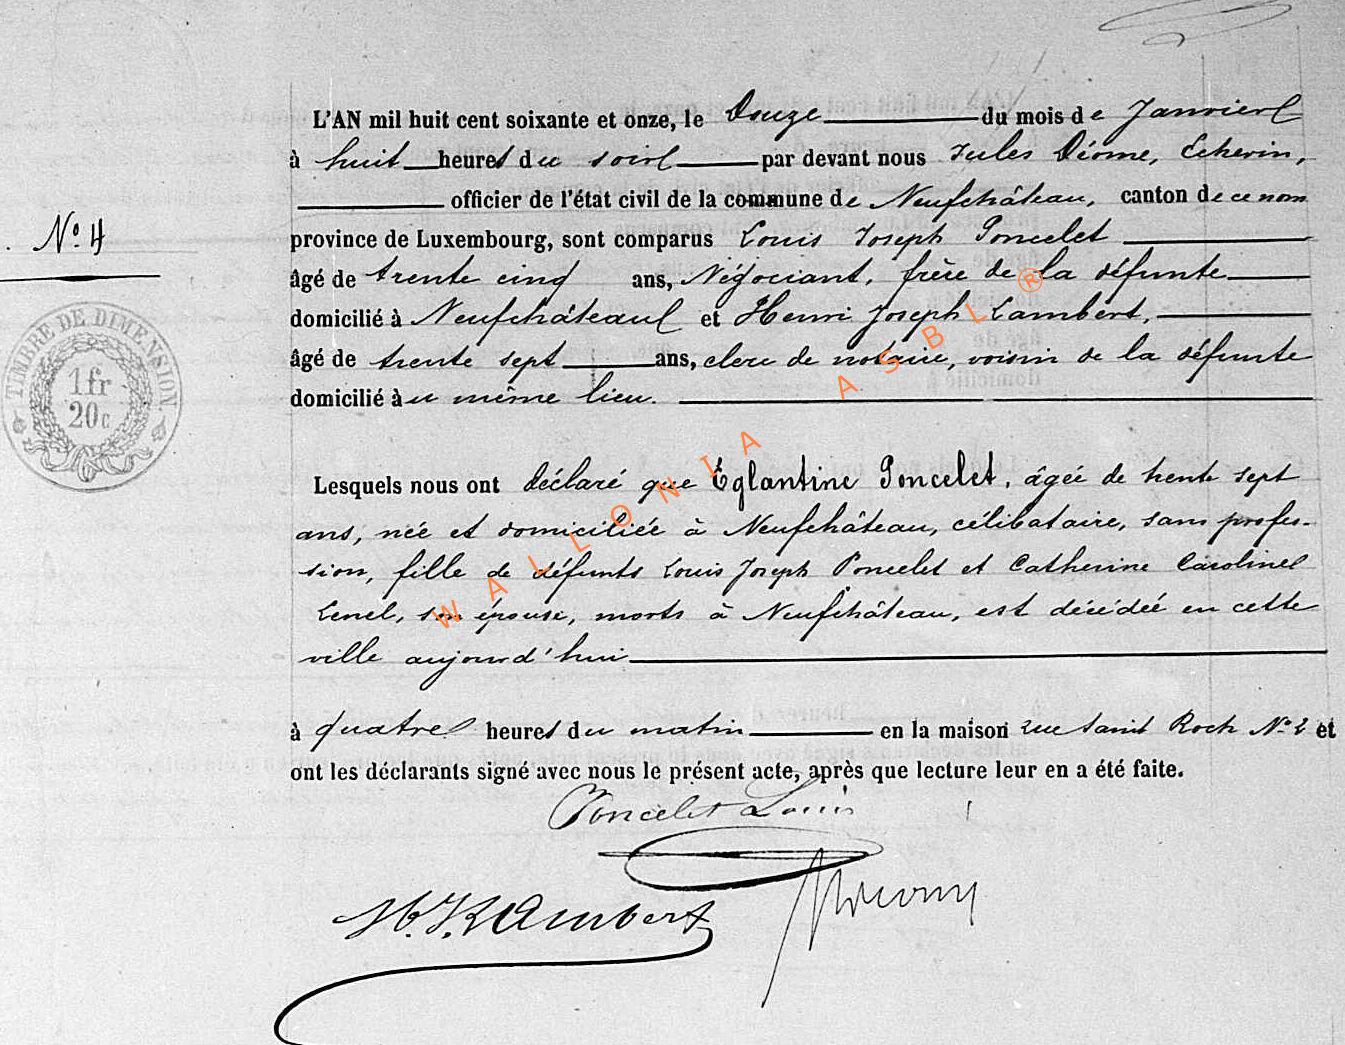 L'AN mil huit cent soixante et onze, le Douze du mois de Janvier
à huit heures du soir par devant nous Jules Diome, Echevin,
officier de l'état civil de la commune de Neufchâteau, canton de ce nom
N° 4
province de Luxembourg, sont comparus Louis Joseph Poncelet
âgé de trente cinq ans, Négociant, frère de la défunte
domicilié à Neufchâteau et Henri Joseph Lambert,
âgé de trente sept ans, clerc de notaire, voisin de la défunte
domicilié au même lieu.
TIMBRE DE DIMENSION.
1 fr
20c
Lesquels nous ont déclaré que Eglantine Poncelet, âgée de trente sept
ans, née et domiciliée à Neufchâteau, célibataire, sans profes-
sion, fille de défunts Louis Joseph Poncelet et Catherine Caroline
Lenel, son épouse, morts à Neufchâteau, est décédée en cette
ville aujourd'hui
à quatre heures du matin en la maison rue Saint Roch N° 2 et
ont les déclarants signé avec nous le présent acte, après que lecture leur en a été faite.
Poncelet Louis
H. J. Lambert
WALLONIA ASBL ®